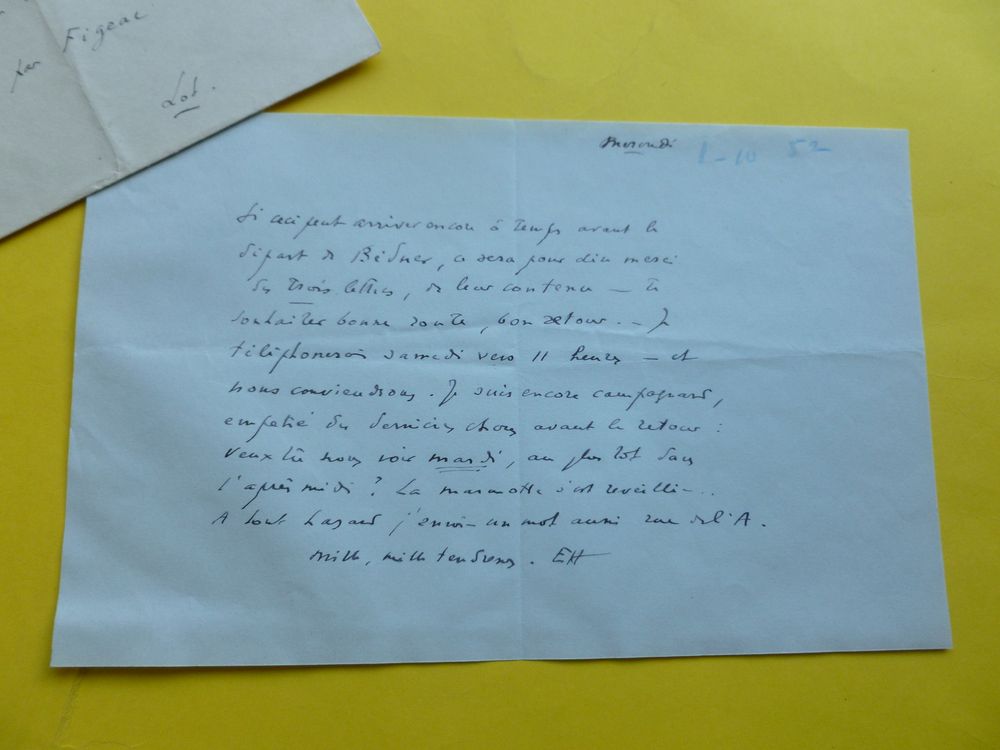 par Figeac
Lot.
Mercredi 1-10 52
Si ceci peut arriver encore à temps avant le
départ de Béduer, ce sera pour dire merci
des trois lettres, de leur contenu – te
souhaiter bonne route, bon retour. – Je
téléphonerai samedi vers 11 heures – et
nous conviendrons. Je suis encore campagnard,
empêtré des dernières choses avant le retour :
Veux tu nous voir mardi, au plus tôt dans
l'après midi ? La marmotte s'est réveillée...
A tout hasard j'envoie un mot aussi rue de l'A.
Mille, mille tendresses. EH